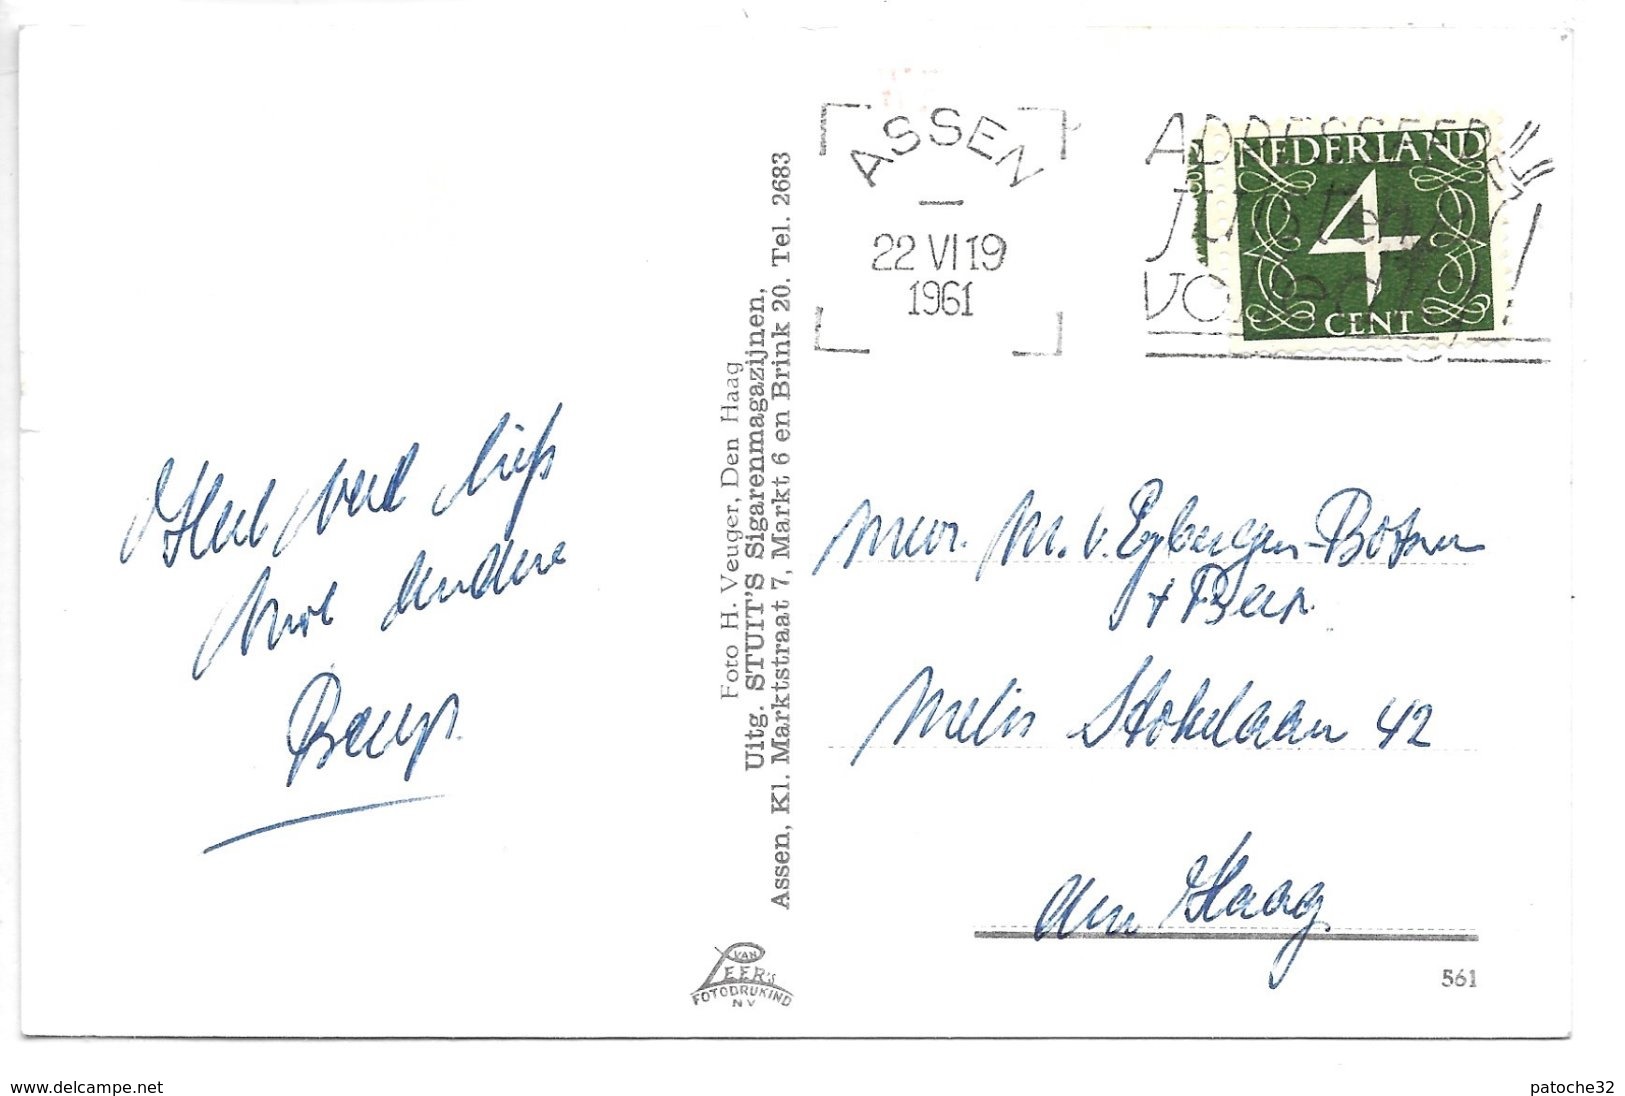 ASSEN
22 VI 19
1961
ADRESSEER
JUIST en
VOLLEDIG!
NEDERLAND
4
CENT
Foto H. Veuger, Den Haag
Uitg. STUIT'S Sigarenmagazijnen,
Assen, Kl. Marktstraat 7, Markt 6 en Brink 20. Tel. 2683
Heel veel liefs
Mevr. M. v. Eybergen-Botman
+ Beep.
Melis Stokelaan 42
den Haag
VAN
LEER'S
FOTODRUKIND
NV
561
www.delcampe.net
patoche32